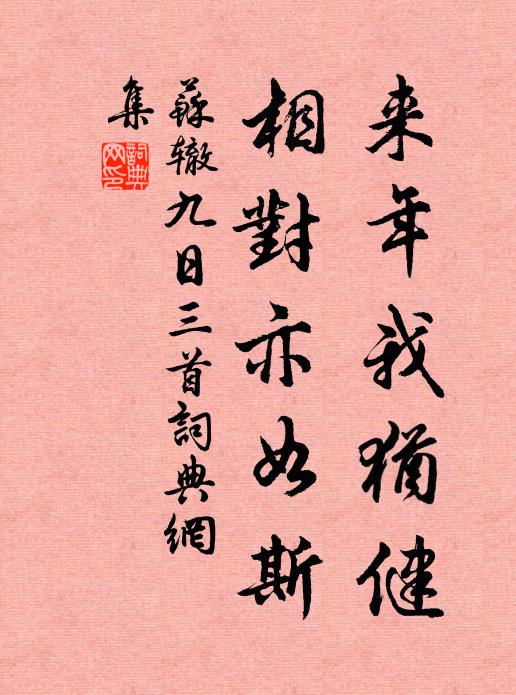 来年我猶健
相對亦如斯
蘇辙九日三首詞典網
集
詞典
网印